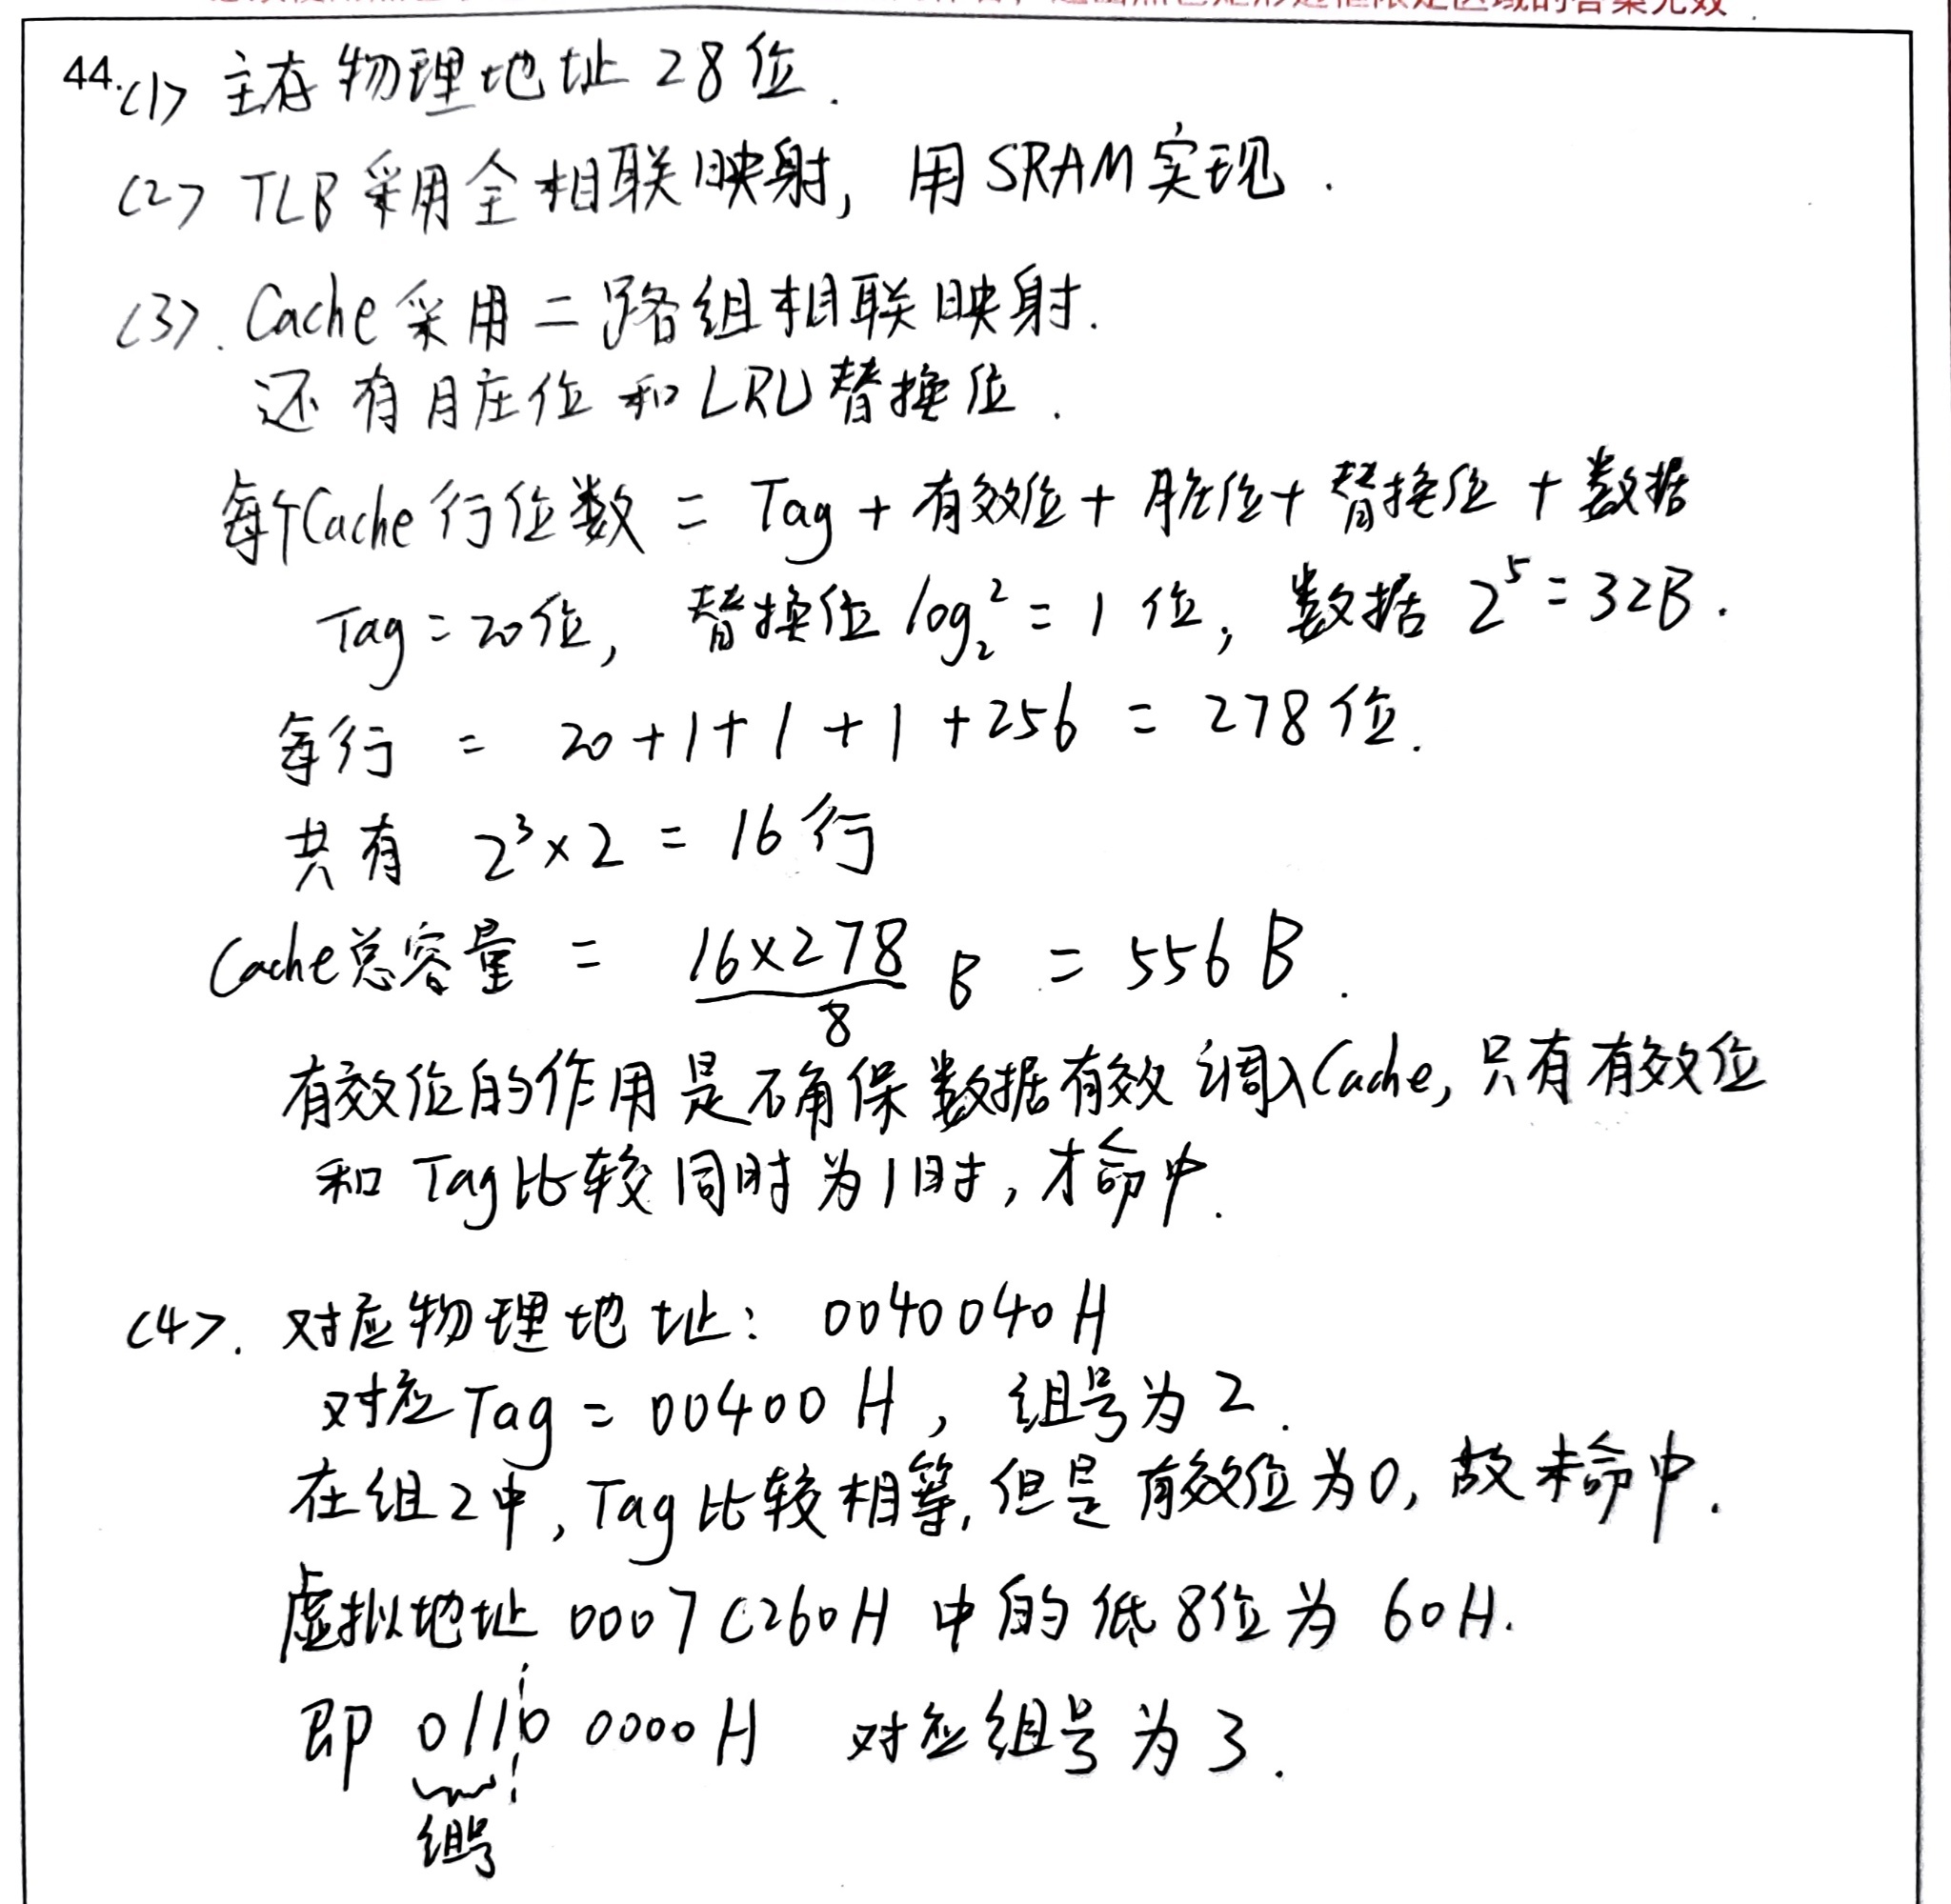 44.(1) 主存物理地址 28位.
(2) TLB采用全相联映射, 用SRAM实现.
(3). Cache采用二路组相联映射.
还有脏位和LRU替换位.
每个Cache行位数 = Tag + 有效位 + 脏位 + 替换位 + 数据
Tag = 20位, 替换位 log₂² = 1 位, 数据 2⁵ = 32B.
每行 = 20 + 1 + 1 + 1 + 256 = 278位.
共有 2³×2 = 16行
Cache总容量 = 16×278/8 B = 556 B.
有效位的作用是确保数据有效调入Cache, 只有有效位
和Tag比较同时为1时, 才命中.
(4). 对应物理地址: 0040040H
对应Tag = 00400H, 组号为2.
在组2中, Tag比较相等, 但是有效位为0, 故未命中.
虚拟地址 0007C260H 中的低8位为 60H.
即 0110 0000H 对应组号为3.
组号